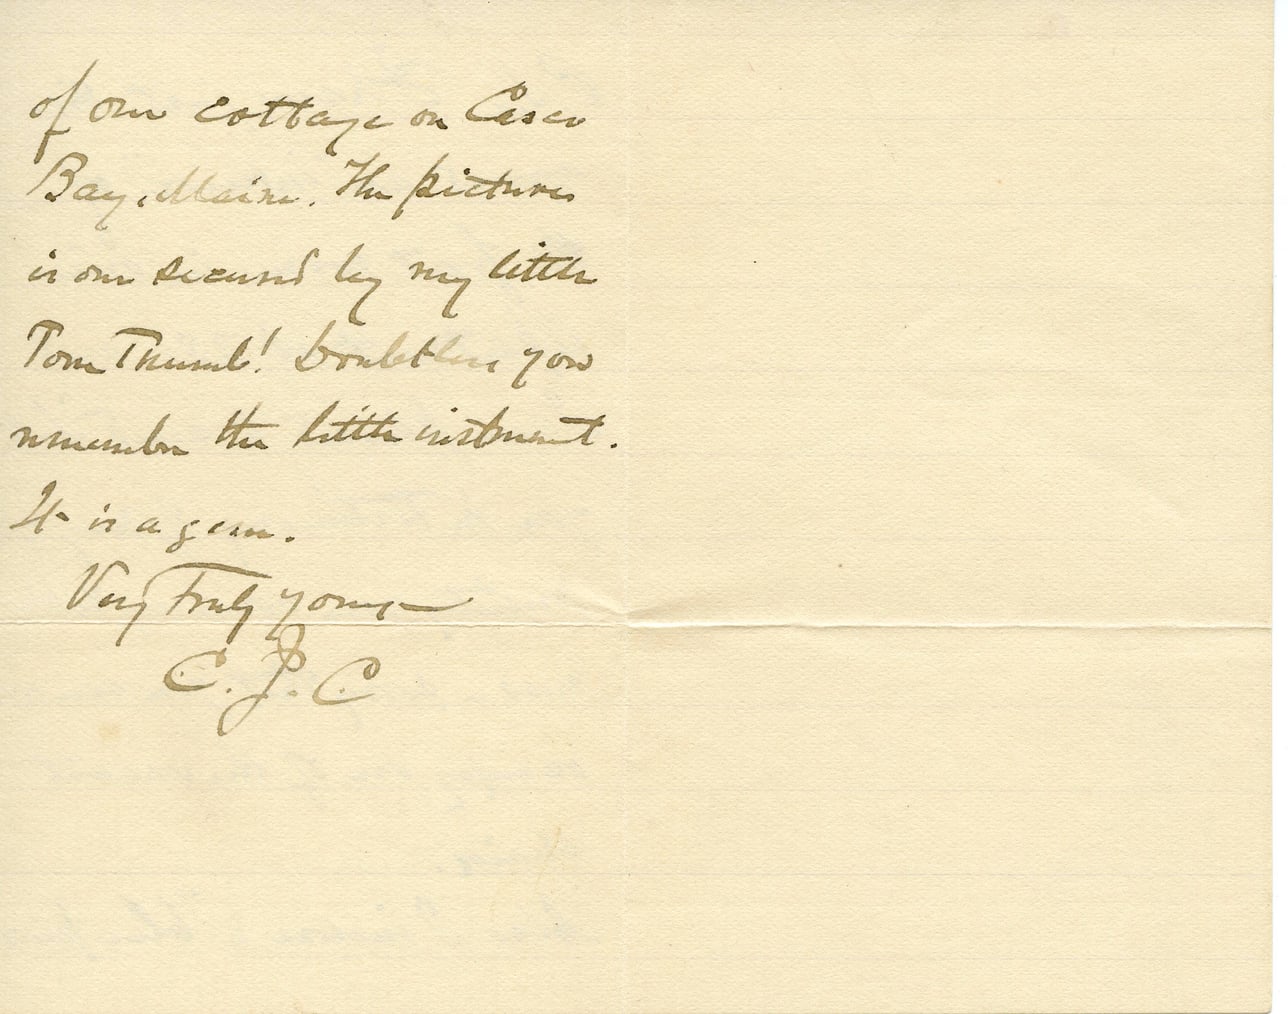 of our cottage on Casco
Bay, Maine. The pictures
is one secured by my little
Tom Thumb! Doubtless you
remember the little instrument.
It is a gem.
Very Truly yours—
C. J. C